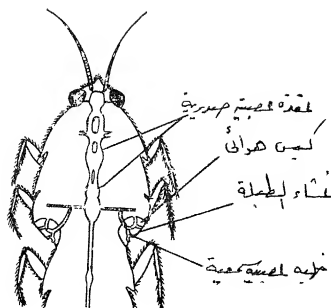 عقدة عصبية صدرية
كيس هوائى
غشاء الطبلة
خلية عصبية سمعية